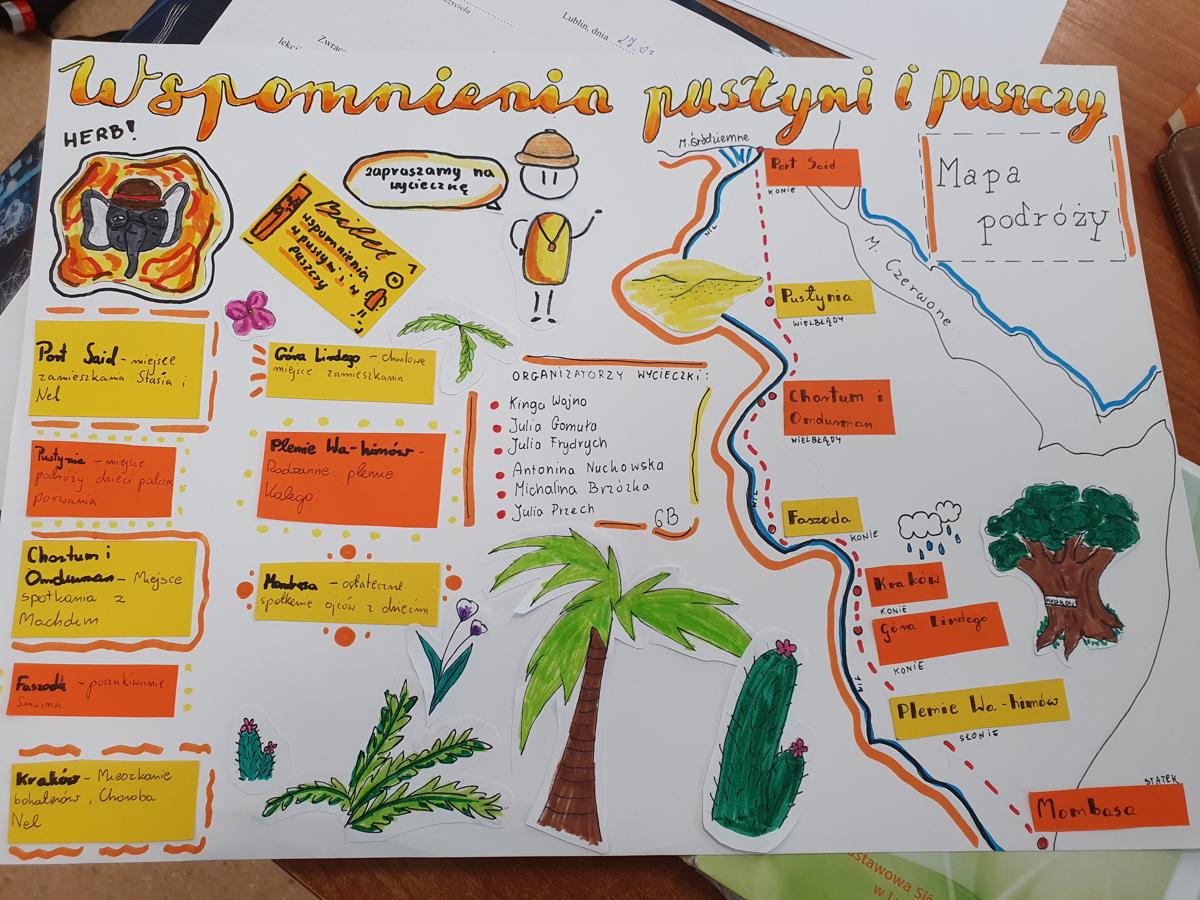 Lublin, dnia
Wspomnienia pustyni i puszczy
HERB!
zapraszamy na
wycieczkę
Bilet
wspomnienia
w pustyni i w
puszczy
Port Said - miejsce
zamieszkania Stasia i
Nel
Pustynia - miejsce
podróży dzieci podczas
porwania
Chartum i
Omdurman - Miejsce
spotkania z
Machdim
Faszoda - poszukiwanie
Smaina
Kraków - Mieszkanie
bohaterów, Choroba
Nel
Góra Lindego - chwilowe
miejsce zamieszkania
Plemie Wa-himów -
Rodzinne plemie
Kalego
Mombasa - ostateczne
spotkanie ojców z dziećmi
ORGANIZATORZY WYCIECZKI:
Kinga Wojno
Julia Gomuła
Julia Frydrych
Antonina Nuchowska
Michalina Brzózka
Julia Przech
6B
Mapa
podróży
M. Śródziemne
Port Said
KONIE
NIL
M. Czerwone
Pustynia
WIELBŁĄDY
Chartum i
Omdurman
WIELBŁĄDY
NIL
Faszoda
KONIE
Kraków
KONIE
KRAKÓW
Góra Lindego
KONIE
NIL
Plemie Wa-himów
SŁONIE
STATEK
Mombasa